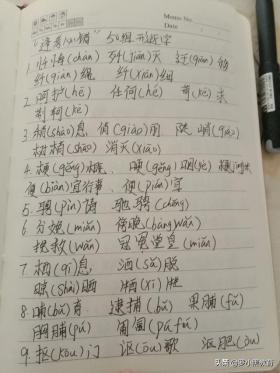 Memo No.
Date
"逢考必错" 50组形近字
1. 忏悔(chàn) 歼(jiān)灭 迁(qiān)移
纤(qiàn)绳 纤(xiān)细
2. 呵护(hē) 任何(hé) 苛(kē)求
荆轲(kē)
3. 捎(shāo)息 俏(qiào)丽 陡峭(qiào)
树梢(shāo) 消灭(xiāo)
4. 梗(gěng)概 哽(gěng)咽(yè)
便(biàn)宜行事 便(pián)宜
5. 聘(pìn)请 驰骋(chěng)
6. 分娩(miǎn) 傍晚(bàng wǎn)
挽救(wǎn) 冠冕堂皇(miǎn)
7. 栖(qī)息 洒(sǎ)脱
晒(shài)晒 牺(xī)牲
8. 哺(bǔ)育 逮捕(bǔ) 果脯(fǔ)
胸脯(pú) 匍匐(pú fú)
9. 抠(kōu)门 讴(ōu)歌 沤肥(òu)
头条 @梦小琪教育